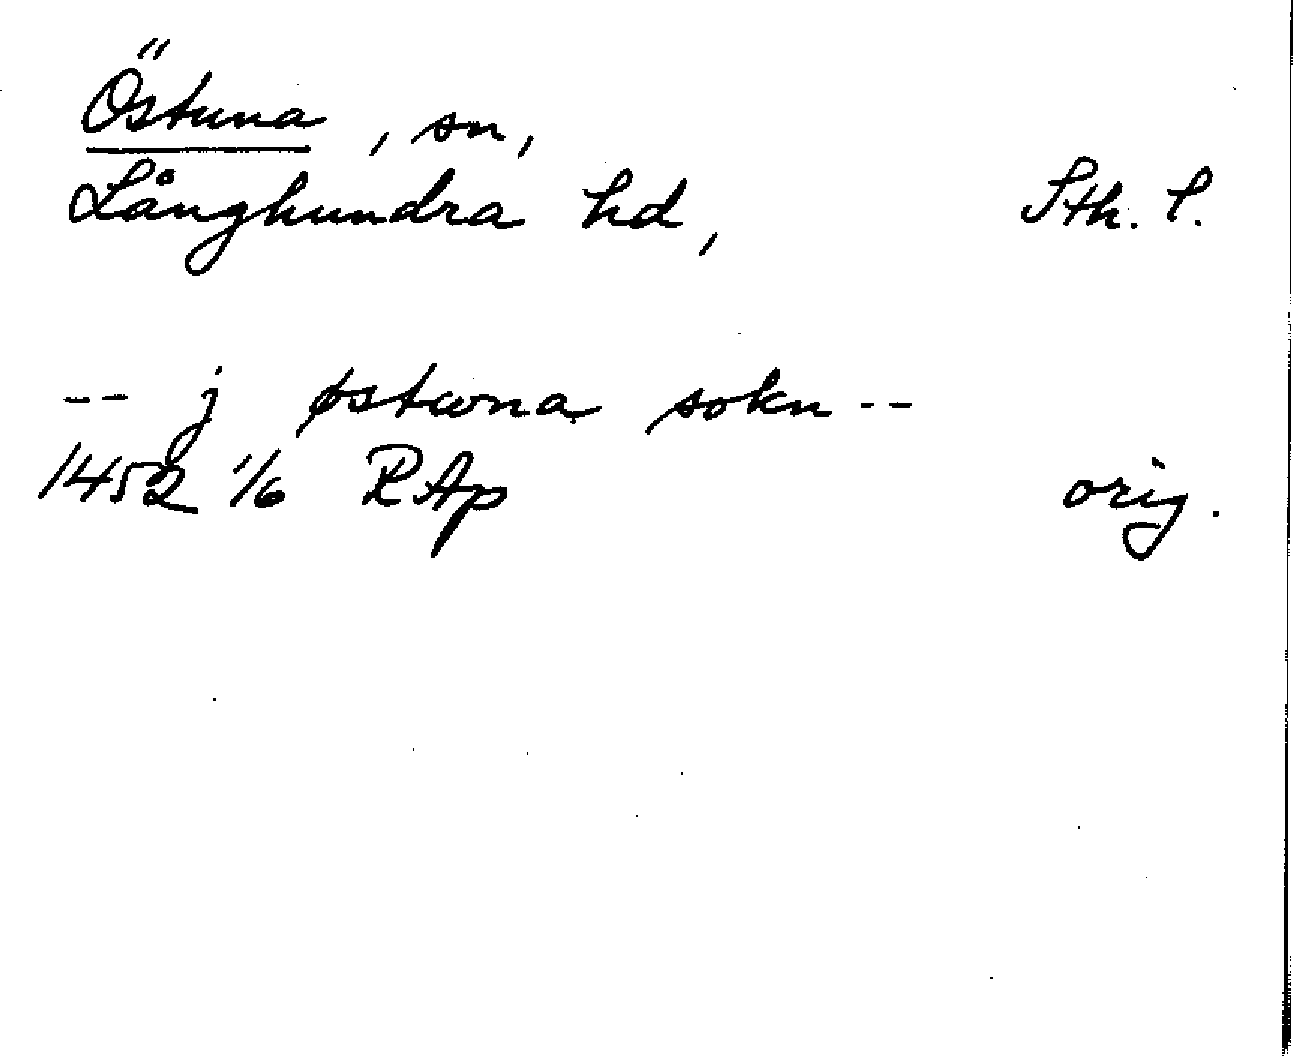 Östuna, sn,
Långhundra hd, Sth. l.
-- j østwna sokn --
1452 1/6 RAp orig.